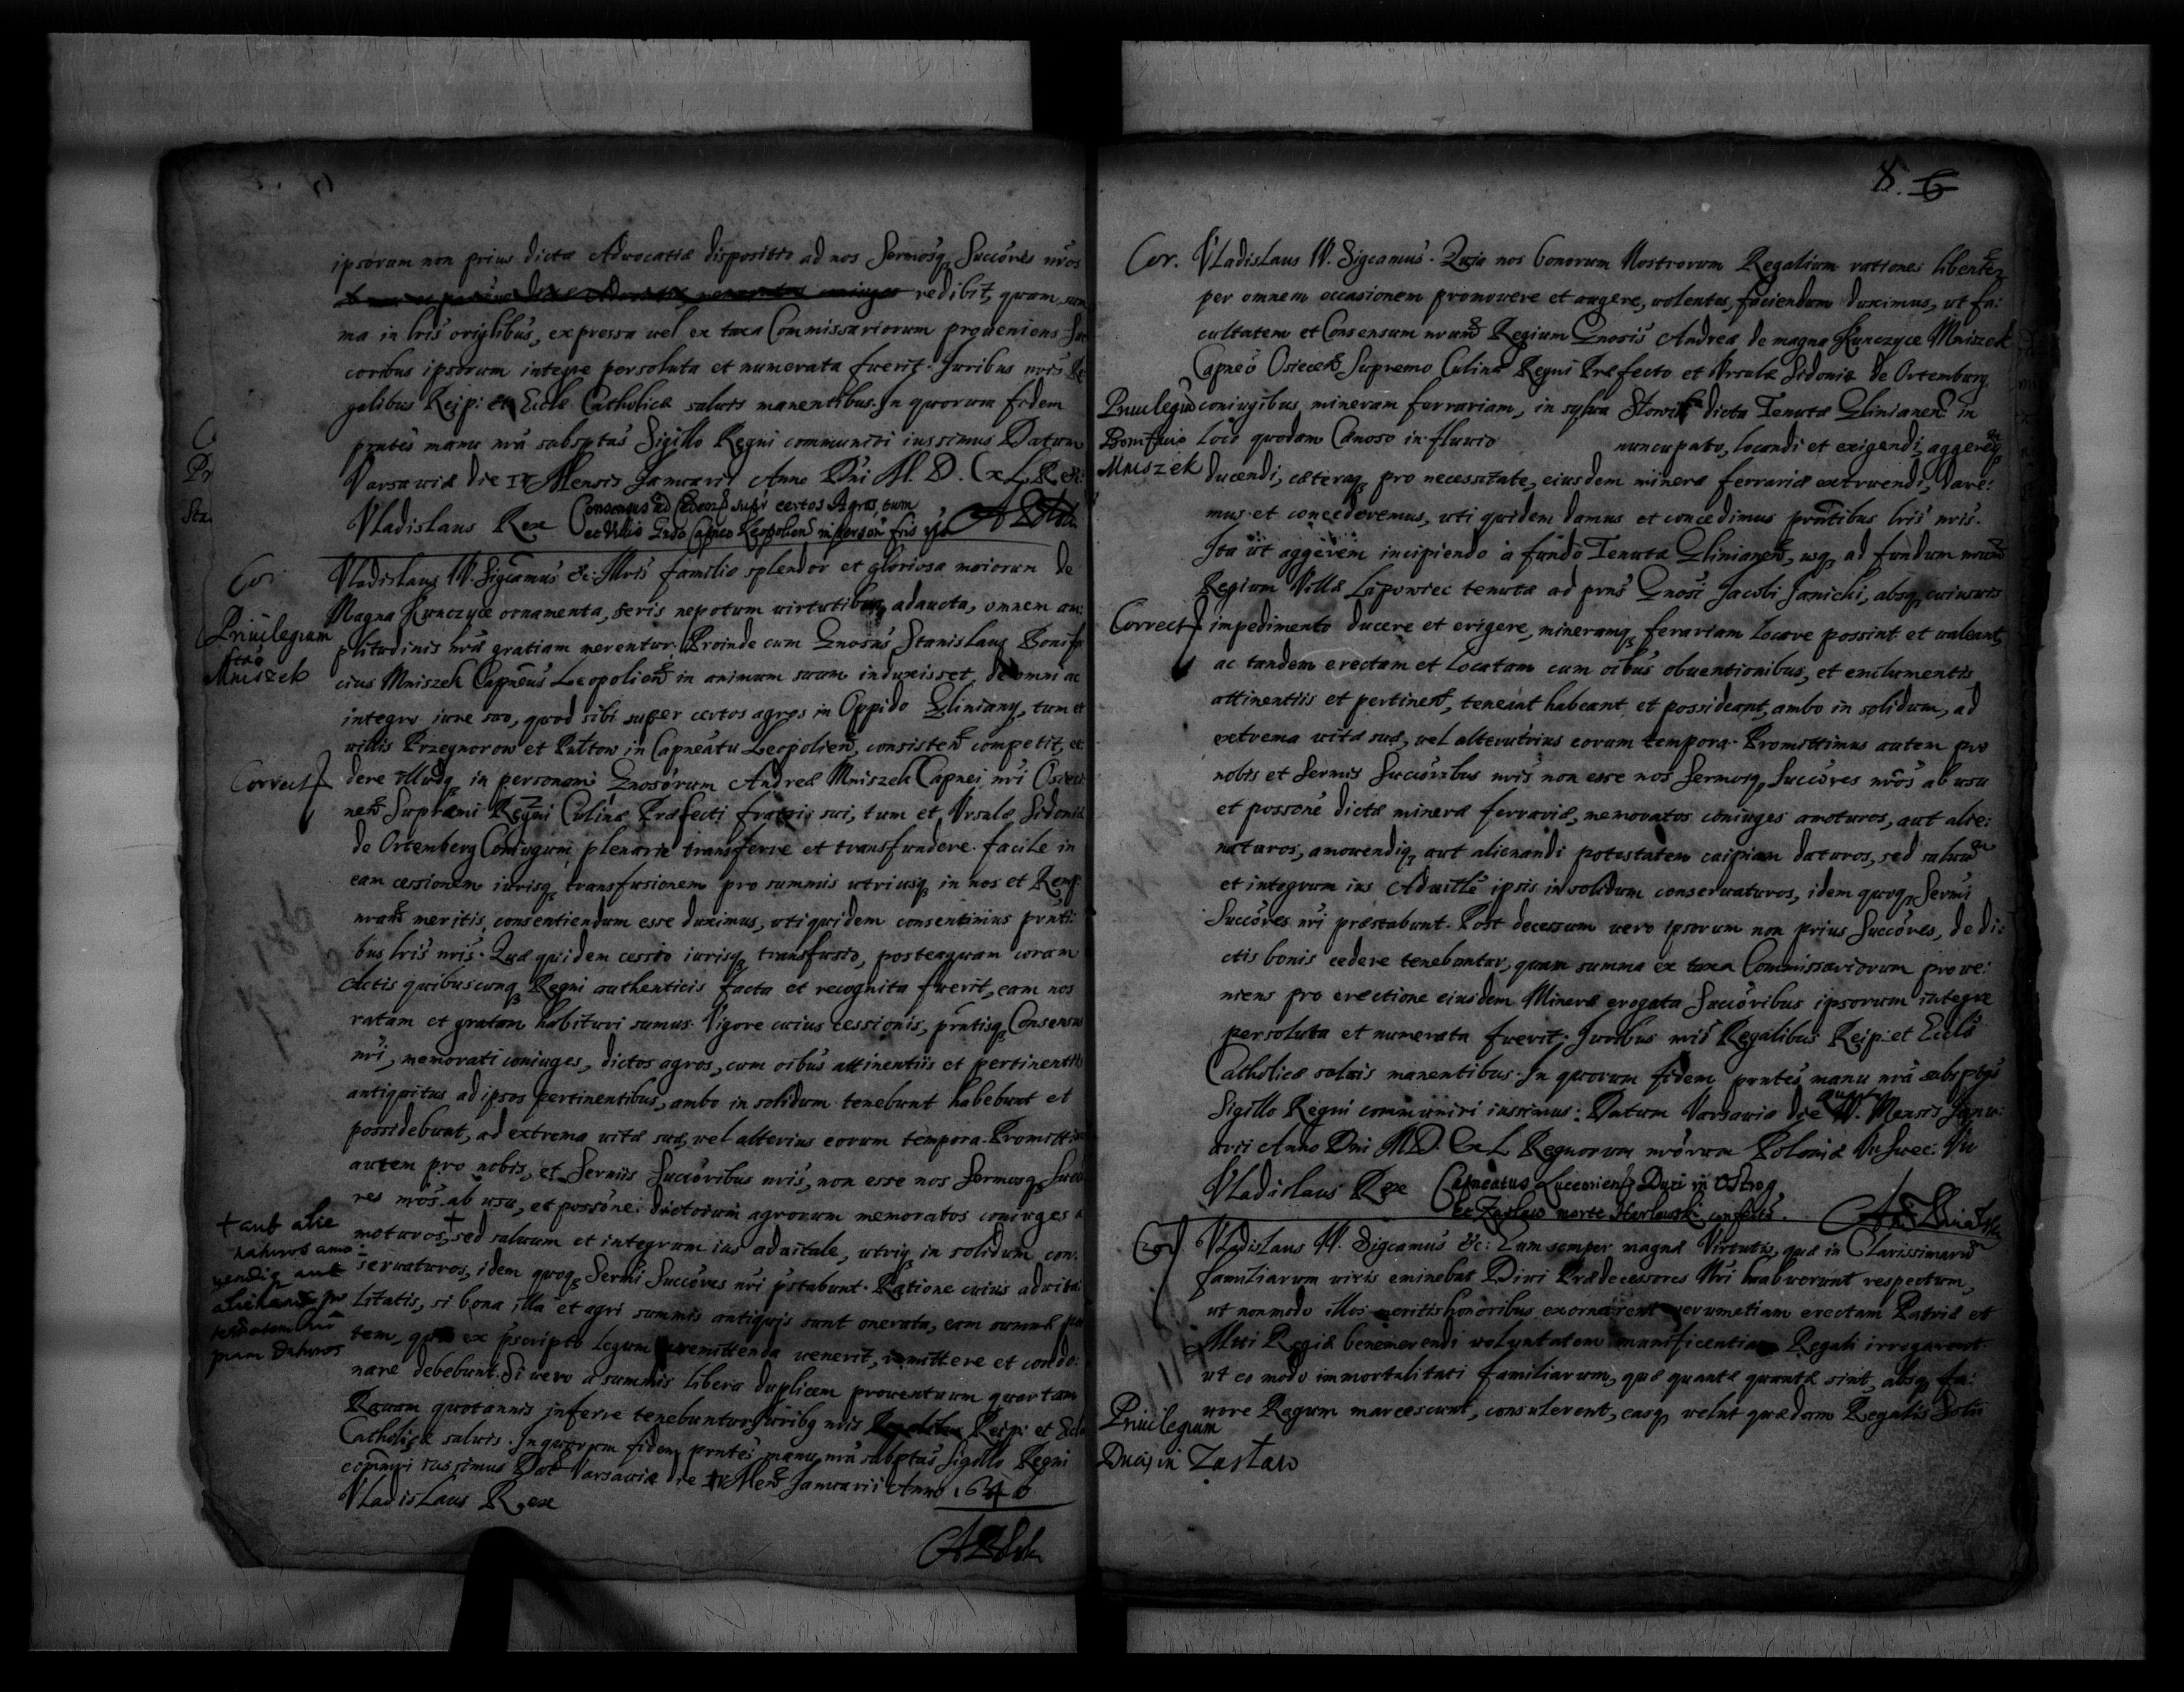 ipsorum non prius dictæ Advocatiæ dispositio ad nos Sermosq Succores nros
redibit, quam sum
ma in lris origlibus, expressa vel ex taxa Commissariorum proveniens Suc
coribus ipsorum integre persoluta et numerata fuerit. Juribus nris Re
galibus Reip: et Eccle Catholicæ salvis manentibus. In quorum fidem
prntes manu nra subsptas Sigillo Regni communiri iussimus Datum
Varsaviæ die IV Mensis Januarii Anno Dni M. D. CxL. R
Vladislaus Rex
Consensus ad cedend super certos Agros, tum
et Villis Gndo Capneo Leopolien in person fris
Cor
Vladislaus IV. Sigcamus &c: Illris familiæ splendor et gloriosa maiorum de
Magna Kunczyce ornamenta, seris nepotum virtutibus, adaucta, omnem am:
Privilegium
Stao
Mniszek
plitudinis nra gratiam merentur. Proinde cum Gnosus Stanislaus Bonifa
cius Mniszek Capneus Leopolien in animum suum induxisset, de omni ac
integro iure suo, quod sibi super certos agros in Oppido Gliniany, tum et
villis Przegnorow et Pułtow in Capneatu Leopolien, consisten competit, ce
Correct
dere illudq in personam Gnosorum Andreæ Mniszek Capnei nri Osiec
nen Supremi Regni Culinæ Præfecti fratris sui, tum et Vrsulæ Sidoniæ
de Ortemberg Coniugum, plenarie transferre et transfundere. facile in
eam cessionem iurisq transfusionem pro summis utriusq in nos et Remp:
nram meritis, consentiendum esse duximus, uti quidem consentimus prnti:
bus lris nris. Quæ quidem cessio iurisq transfusio, posteaquam coram
Actis quibuscunq Regni authenticis facta et recognita fuerit, eam nos
ratam et gratam habituri sumus. Vigore cuius cessionis, prntisq Consensus
nri, memorati coniuges, dictos agros, cum oibus attinentiis et pertinentiis
antiquitus ad ipsos pertinentibus, ambo in solidum tenebunt habebunt et
possidebunt, ad extrema vitæ suæ, vel alterius eorum tempora. Promittimus
autem pro nobis, et Sermis Succoribus nris, non esse nos Sermosq Succo
res nros ab usu, et possone dictorum agrorum memoratos coniuges a
moturos, + sed salvum et integrum ius advitale, utriq in solidum con:
+ aut alie
naturos amo
vendiq aut
alienandi po
testatem cui
piam daturos
servaturos, idem quoq Sermi Succores nri pstabunt. Ratione cuius advita:
litatis, si bona illa et agri summis antiquis sunt onerata, eam summæ par
tem, quæ ex pscripto legum remittenda venerit, remittere et condo:
nare debebunt. Si vero a summis libera duplicem proventuum quartam
Ravam quotannis inferre tenebuntur Juribq nris Reip: et Eccle
Catholicæ salvis. In quorum fidem prntes manu nra subsptas Sigillo Regni
communiri iussimus Dat Varsaviæ die IV Men Januarii Anno 1640
Vladislaus Rex
8. 6
Cor. Vladislaus IV. Sigcamus. Quia nos bonorum Nostrorum Regalium rationes libenter
per omnem occasionem promovere et augere, volentes, faciendum duximus, ut fa:
cultatem et Consensum nrum Regium Gnosis Andreæ de magna Kunczyce Mniszek
Capneo Osiecen Supremo Culinæ Regni Præfecto et Vrsulæ Sidoniæ de Ortemburg
Privilegiu
Bonifacio
Mniszek
coniugibus, mineram ferrariam, in sylva dicta Tenutæ Glinianen in
loco quodam Canoso in fluvio nuncupato, locandi et exigendi, aggerem
ducendi, cæteraq pro necessitate, eiusdem mineræ ferrariæ extruendi, dare:
mus et concederemus, uti quidem damus et concedimus prntibus lris nris.
Ita ut aggerem incipiendo a fundo Tenutæ Glinianen, usq ad fundum nrum
Regium Villæ Lapowiec tenutæ ad prns Gnosi Jacobi Janicki, absq cuiusvis
Correct
impedimento ducere et erigere, mineramq ferariam locare possint et valeant,
ac tandem erectam et locatam cum oibus obventionibus, et emolumentis
attinentiis et pertinen, teneant habeant et possideant, ambo in solidum, ad
extrema vitæ suæ, vel alterutrius eorum tempora. Promittimus autem pro
nobis et Sermis Succoribus nris non esse nos Sermosq Succores nros ab usu
et possone dictæ mineræ ferrariæ, memoratos coniuges amoturos, aut alie:
naturos, amovendiq aut alienandi potestatem cuipiam daturos, sed salvum
et integrum ius Advitle ipsis in solidum conservaturos, idem quoq Sermi
Succores nri præstabunt. Post decessum vero ipsorum non prius Succores, de di:
ctis bonis cedere tenebuntur, quam summa ex taxa Commissariorum prove:
niens pro erectione eiusdem Mineræ erogata Succoribus ipsorum integre
persoluta et numerata fuerit; Juribus nris Regalibus Reip: et Eccla
Catholicæ salvis manentibus. In quorum fidem prntes manu nra subsptas
Sigillo Regni communiri iussimus. Datum Varsaviæ die IV. Mensis Janu:
arii Anno Dni MD. CxL Regnorum nrorum Poloniæ
Vladislaus Rex
Capneatus Luceorien Duci in Ostrog
et Zasław morte
Cor
Vladislaus IV. Sigcamus &c: Eum semper magnæ Virtutis, quæ in Clarissimarum
familiarum viris eminebat Divi Prædecessores Nri habuerunt respectum,
ut non modo illos meritis honoribus exornarent verumetiam erectam Patriæ et
Mtti Regiæ benemerendi voluntatem munificentia Regali irrogarent
ut eo modo immortalitati familiarum, quæ quantæ quantæ sint, absq fa:
vore Regum marcescunt, consulerent, easq velut quædam Regalis Solii
Privilegium
Ducis in Zasław